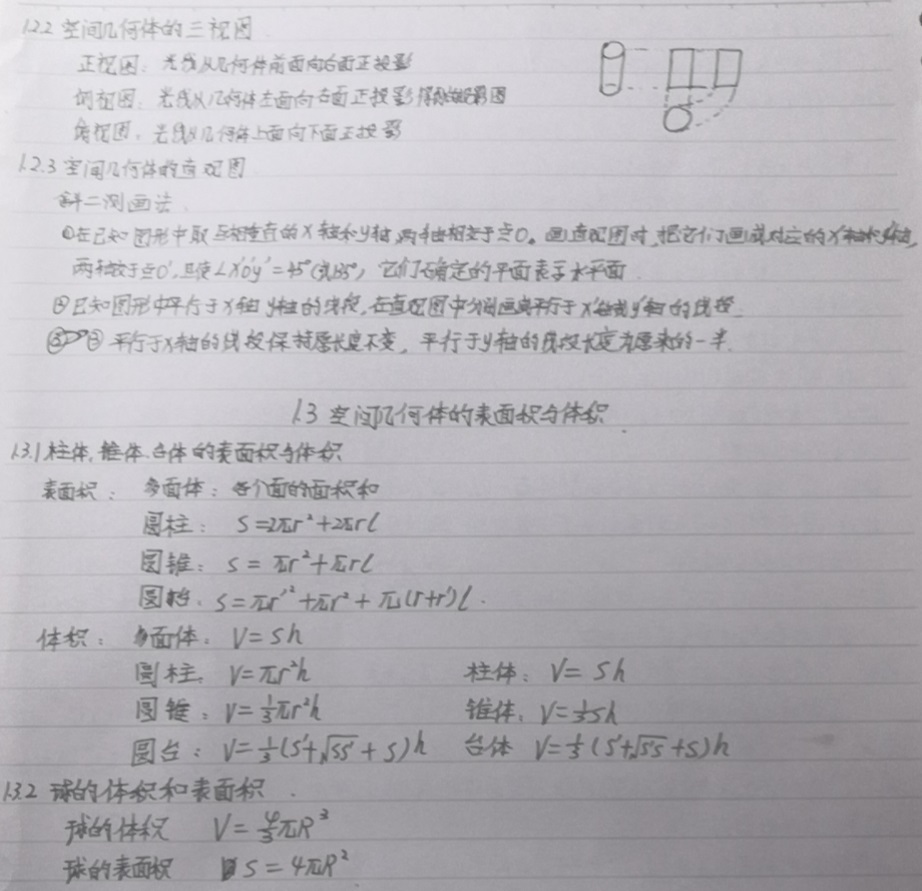 1.2.2 空间几何体的三视图
正视图：光线从几何体前面向后面正投影
侧视图：光线从几何体左面向右面正投影得到的投影图
俯视图：光线从几何体上面向下面正投影
1.2.3 空间几何体的直观图
斜二测画法
①在已知图形中取互相垂直的x轴和y轴,两轴相交于点O。画直观图时,把它们画成对应的x'轴和y'轴,
两轴交于点O',且使∠x'o'y'=45°(或135°),它们确定的平面表示水平面
②已知图形中平行于x轴y轴的线段,在直观图中分别画成平行于x'轴或y'轴的线段.
③平行于x轴的线段保持原长度不变,平行于y轴的线段长度为原来的一半.
1.3 空间几何体的表面积与体积
1.3.1 柱体.锥体.台体的表面积与体积
表面积：多面体：各个面的面积和
圆柱：S=2πr²+2πrl
圆锥：S=πr²+πrl
圆台：S=πr'²+πr²+π(r+r')l.
体积：多面体：V=Sh
圆柱：V=πr²h 柱体：V=Sh
圆锥：V=1/3πr²h 锥体：V=1/3Sh
圆台：V=1/3(S'+√SS'+S)h 台体 V=1/3(S'+√S'S+S)h
1.3.2 球的体积和表面积.
球的体积 V=4/3πR³
球的表面积 S=4πR²